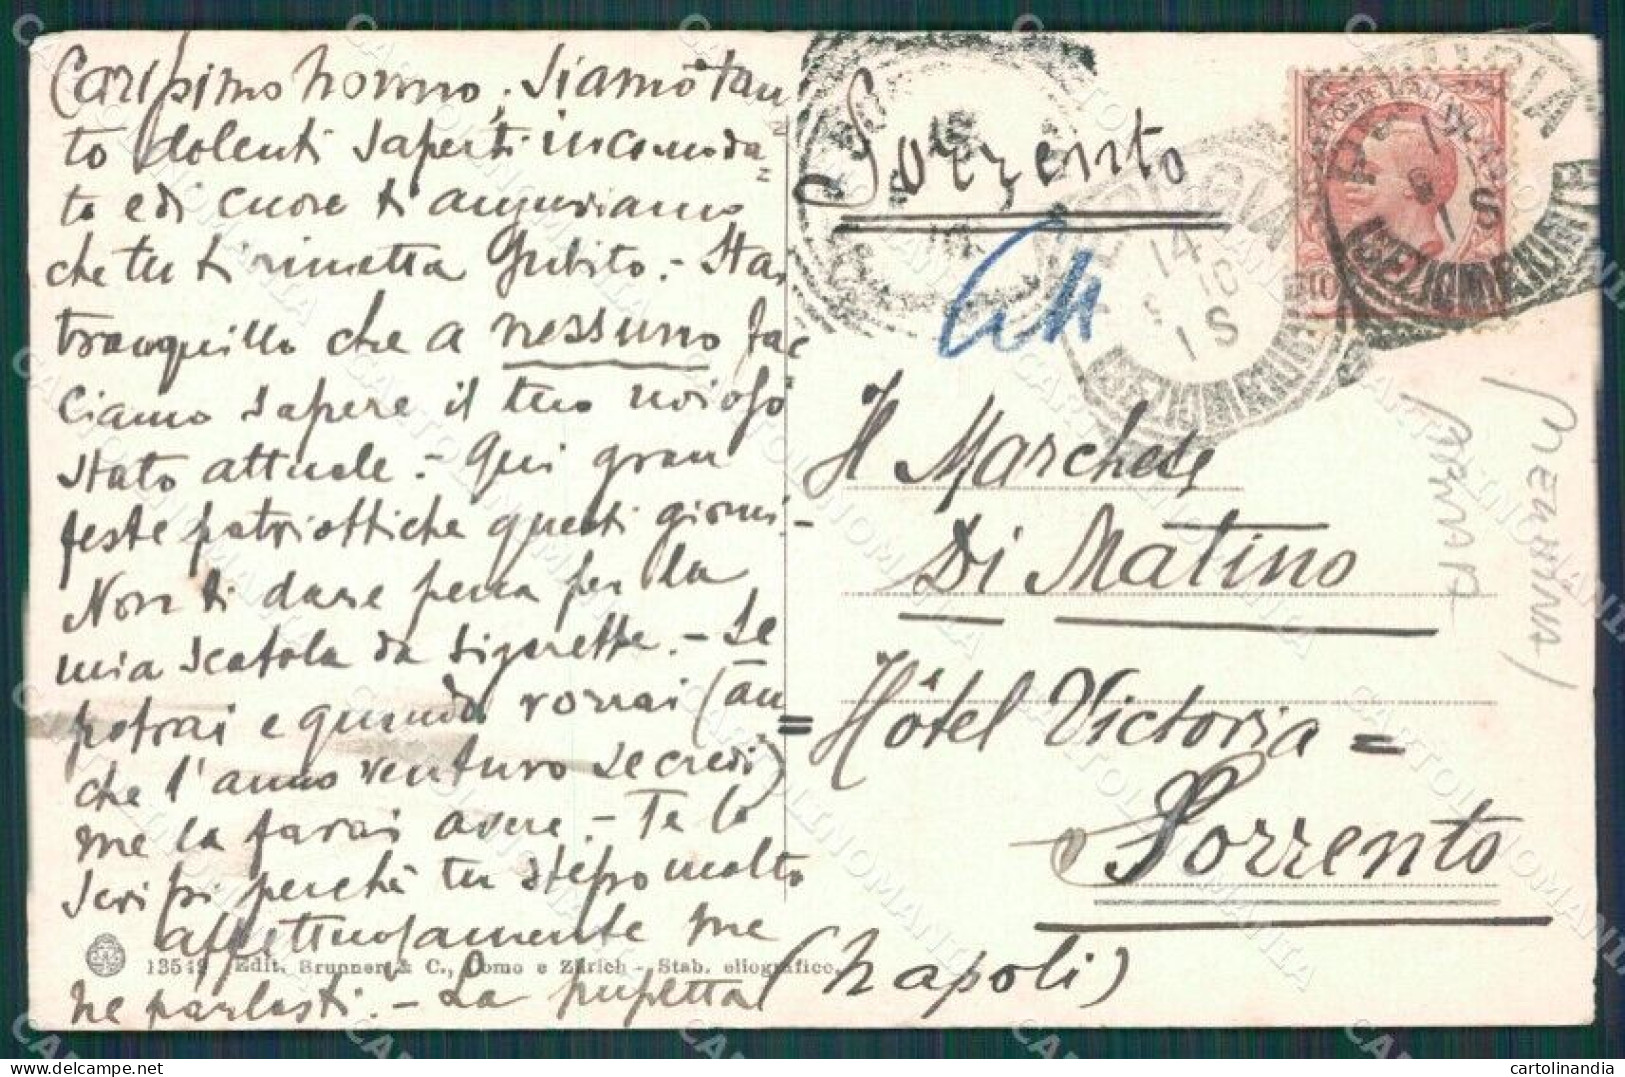 Carissimo nonno, Siamo tan
to dolenti saperti incomoda=
to e di cuore ti auguriamo
che tu ti rimetta subito. - Stai
tranquillo che a nessuno fac=
ciamo sapere il tuo noioso
stato attuale. - Qui gran
feste patriottiche questi giorni -
Non ti dare pena per la
mia scatola da sigarette. - Se
potrai e quando vorrai (an=
che l'anno venturo se credi)
me la farai avere. - Te lo
scrissi perchè tu stesso molto
affettuosamente me
ne parlasti. - La pupetta
13549 Edit. Brunner & C., Como e Zürich - Stab. eliografico.
Sorrento
POSTE ITALIANE
10
14
1 S
Il Marchese
Di Matino
Hôtel Victoria =
Sorrento
(Napoli)
cartolinandia